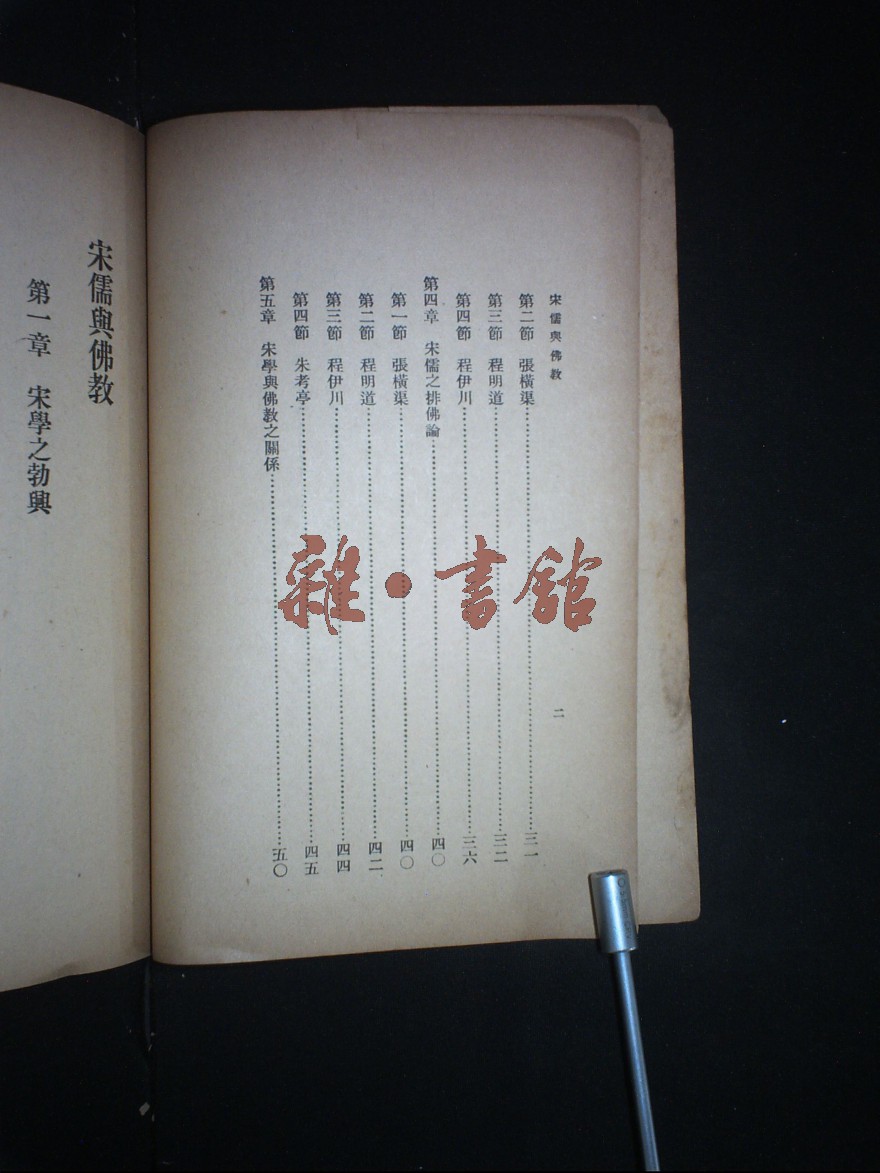 宋儒與佛教
二
第二節　張橫渠……三一
第三節　程明道……三二
第四節　程伊川……三六
第四章　宋儒之排佛論……四〇
第一節　張橫渠……四〇
第二節　程明道……四二
第三節　程伊川……四四
第四節　朱考亭……四五
第五章　宋學與佛教之關係……五〇
宋儒與佛教
第一章　宋學之勃興
雜·書館